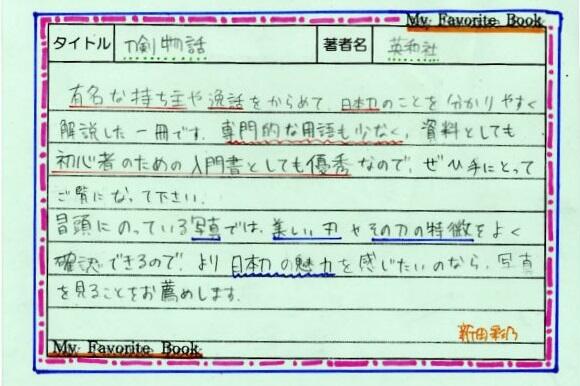 My Favorite Book
タイトル 刀剣物語 著者名 英和社
有名な持ち主や逸話をからめて、日本刀のことを分かりやすく
解説した一冊です。専門的な用語も少なく、資料としても
初心者のための入門書としても優秀なので、ぜひ手にとって
ご覧になって下さい。
冒頭にのっている写真では、美しい刃やその刀の特徴をよく
確認できるので、より日本刀の魅力を感じたいのなら、写真
を見ることをお薦めします。
My Favorite Book